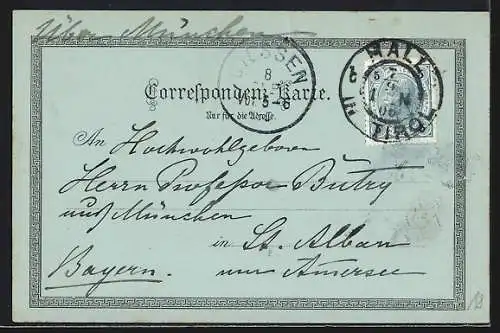 Über München
HALL
TIROL
GIESSEN
8
5-6
Correspondenz-Karte.
Nur für die Adresse.
An Hochwohlgeboren
Herrn Professor Butry
aus München
in St. Alban
Bayern. am Amersee